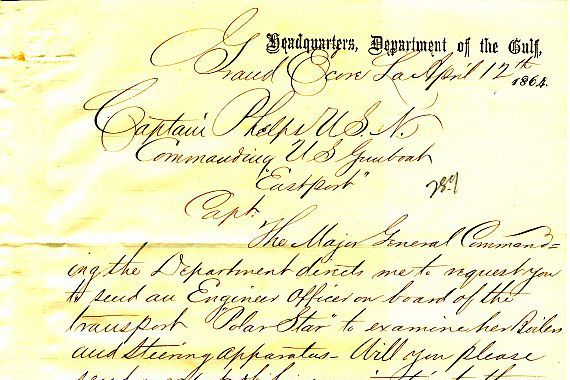 Headquarters, Department of the Gulf,
Grand Ecore La April 12th
1864.
Captain Phelps U.S.N.
Commanding US Gunboat
"Eastport"
Capt.
The Major General Command=
ing the Department directs me to request you
to send an Engineer Officer on board of the
transport "Polar Star" to examine her Boilers
and Steering apparatus - Will you please